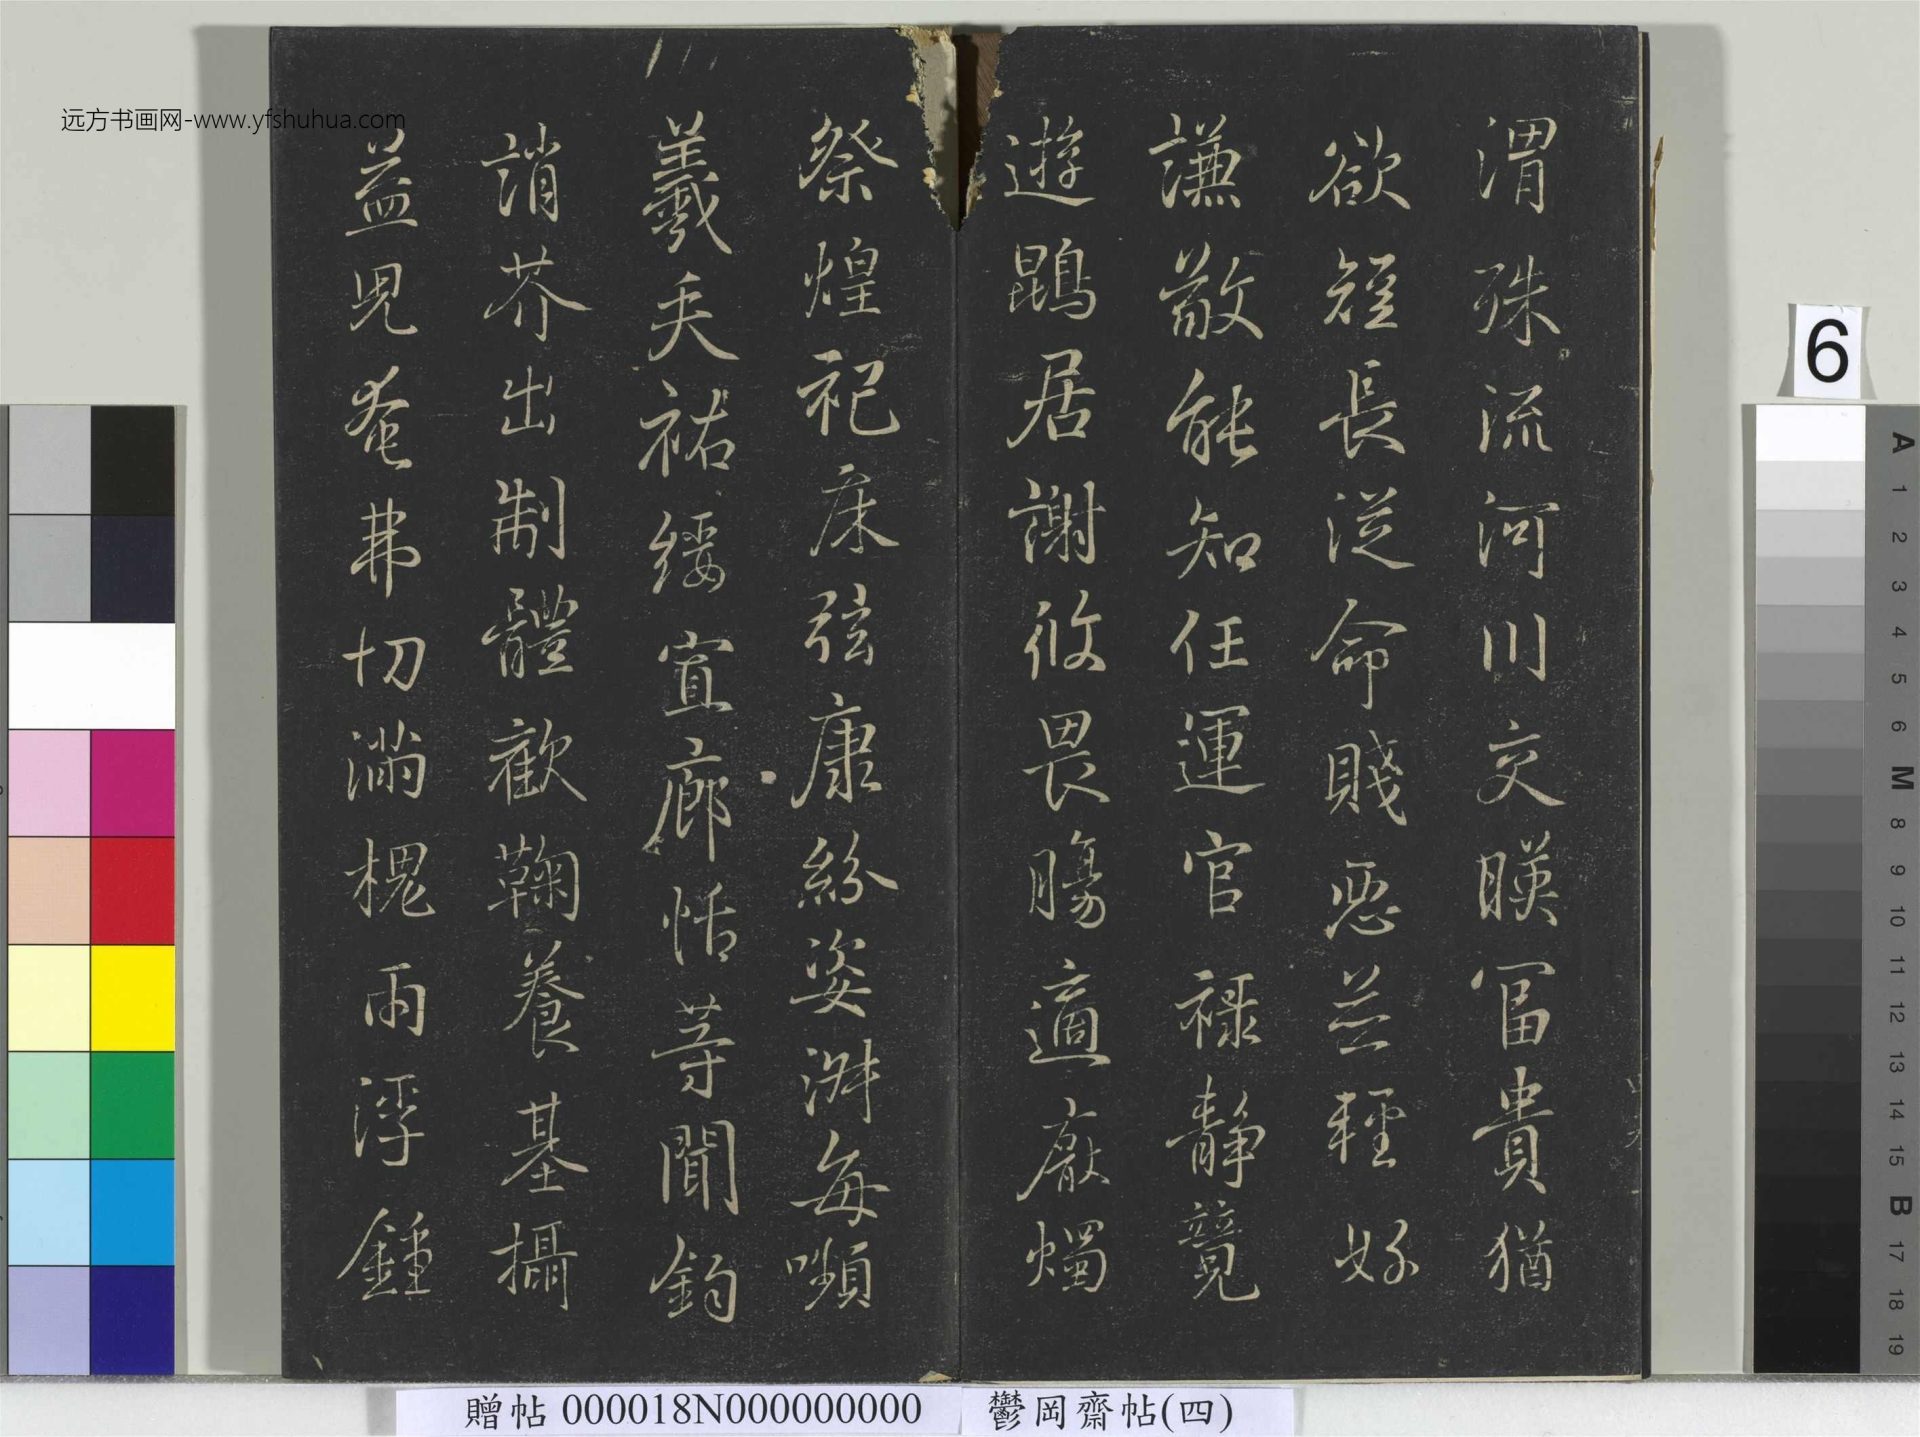 渭殊流河川交暎冨貴猶
欲短長從命賤惡並輕好
謙敬能知任運官禄静竟
遊鵾居謝攸畏膓適厭燭
祭煌祀床弦康紛姿淑每嚬
羲矢祐綏宣廊恬等聞鈞
誚芥出制體歡鞠養基攝
益皃奄弗切滿槐雨浮鍾
远方书画网-www.yfshuhua.com
6
A
1
2
3
4
5
6
M
8
9
10
11
12
13
14
15
B
17
18
19
贈帖 000018N000000000
鬱岡齋帖(四)